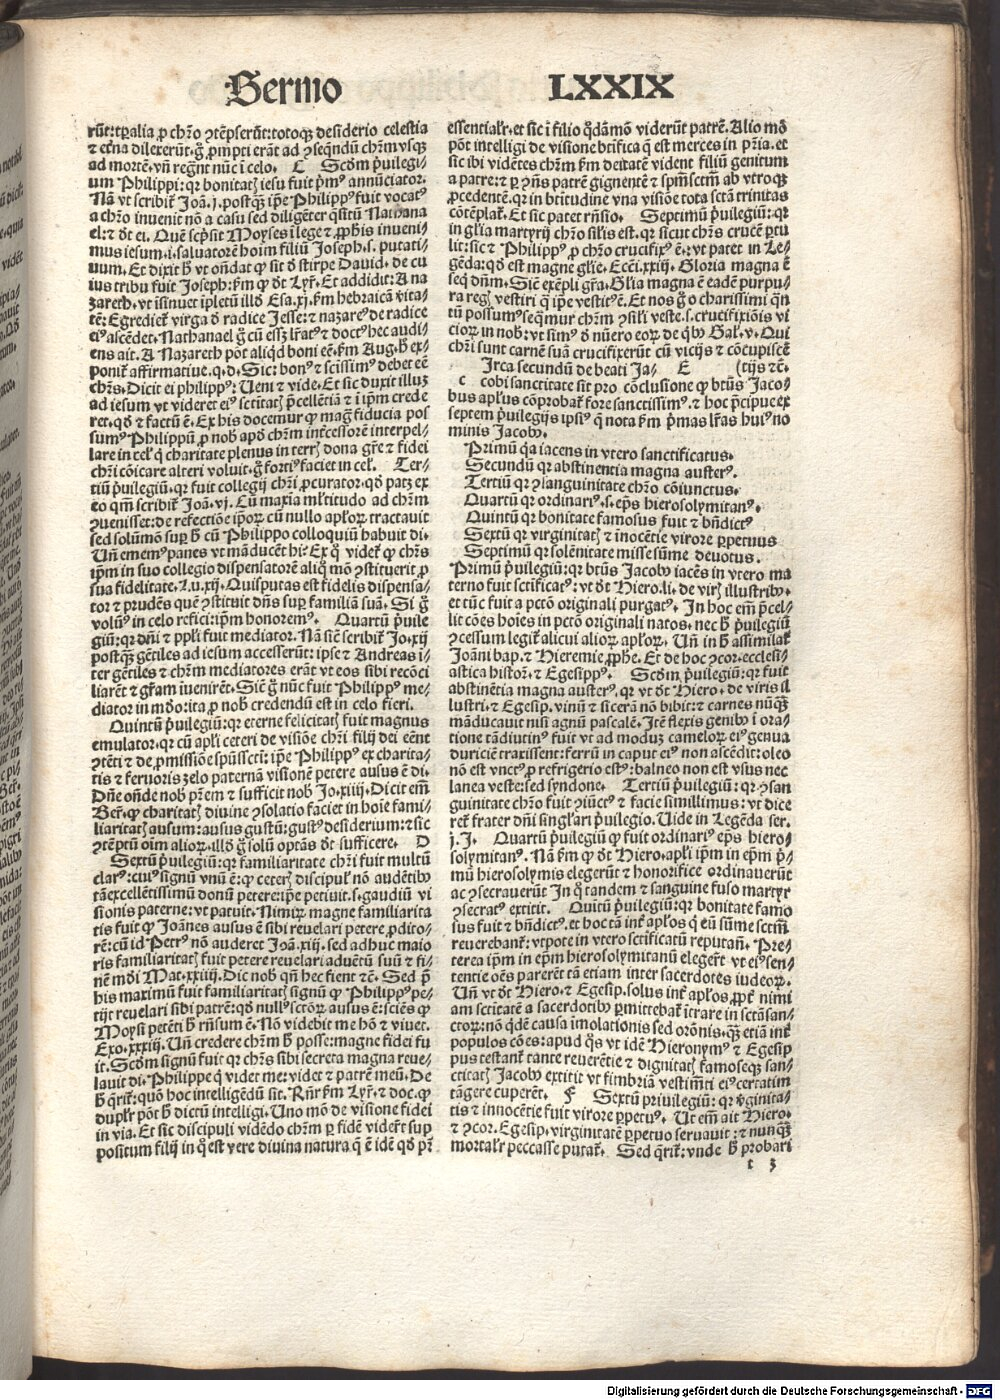 Sermo LXXIX
rūt: tꝑalia ꝓ chrō ꝯtēpserūt: totoqꝫ desiderio celestia
⁊ et̄na dilexerūt. gͦ ꝓmpti erāt ad ꝯseqn̄dū chrm̄ vsqꝫ
ad mortē. vn̄ regn̄t nūc ī celo. C Scd̄m p̄uilegi⸗
um Philippi: qꝛ bonitatꝭ iesu fuit pͥmꝰ annūciator.
Nā vt scribit̄ Joā. j. postqꝫ ip̄e Philippꝰ fuit vocatꝰ
a chrō inuenit nō a casu sed diligēter q̄sitū Nathana
el: ⁊ dt̄ ei. Quē scp̄sit Moyses ī lege ⁊ ꝓphis inueni⸗
mus iesum. i. saluatorē hoīm filiū Joseph. s. putati⸗
uum. Et dixit hͦ vt on̄dat ꝙ sit d̄ stirpe Dauid. de cu
ius tribu fuit Joseph: ẜm ꝙ dt̄ Lyrͣ. Et addidit: A na
zareth. vt īsinuet īpletū illd̄ Esa. xj. ẜm hebraicā v̓ita⸗
tē: Egrediet̄ virga d̄ radice Jesse: ⁊ nazareꝰ de radice
eiꝰ ascēdet. Nathanael gͦ cū eēꝫ lr̄atꝰ ⁊ doctꝰ hec audi⸗
ens ait. A Nazareth pōt aliqd̄ boni eē. ẜm Aug. hͦ ex⸗
ponit̄ affirmatiue. q. d. Sic: bonꝰ ⁊ scīssimꝰ debet eē
chrs̄. Dicit ei philippꝰ: Ueni ⁊ vide. Et sic duxit illuꝫ
ad iesum vt videret eiꝰ sctitatꝭ p̄cellētiā ⁊ ī ip̄m crede
ret. qd̄ ⁊ factū ē. Ex his docemur ꝙ magͣ fiducia pos
sumꝰ Philippū ꝓ nob̄ apd̄ chrm̄ intcessorē interpel⸗
lare in cel̄ qͥ charitate plenus in terrꝭ dona gr̄e ⁊ fidei
chrī cōicare alteri voluit. gͦ fortiꝰ faciet in cel̄. Ter⸗
tiū p̄uilegiū. qꝛ fuit collegij chrī ꝓcurator. qd̄ patꝫ ex
eo qm̄ scribit̄ Joā. vj. Cū maxīa ml̄titudo ad chrm̄
ꝯuenisset: de refectiōe ip̄oꝝ cū nullo apl̄oꝝ tractauit
sed solūmō suꝑ hͦ cū Philippo colloquiū habuit di.
Un̄ ememꝰ panes vt māducēt hi: Ex qͦ videt̄ ꝙ chrs̄
ip̄m in suo collegio dispensatorē aliqͦ mō ꝯstituerit ꝓ
sua fidelitate. Lu. xij. Quisputas est fidelis dispensa⸗
tor ⁊ prudēs quē ꝯstituit dn̄s suꝑ familiā suā. Si gͦ
volūꝰ in celo refici: ip̄m honoremꝰ. Quartū p̄uile
giū: qꝛ dn̄i ⁊ ppl̄i fuit mediator. Nā sic̄ scribit̄ Jo. xij
postqꝫ gētiles ad iesum accesserūt: ipse ⁊ Andreas ī⸗
ter gētiles ⁊ chrm̄ mediatores erāt vt eos sibi recōci
liarēt ⁊ gr̄am īuenirēt. Sic̄ gͦ nūc fuit Philippꝰ me⸗
diator in mō: ita ꝓ nob̄ credendū est in celo fieri.
Quintū p̄uilegiū: qꝛ eterne felicitatꝭ fuit magnus
emulator. qꝛ cū apl̄i ceteri de visiōe chrī filij dei eēnt
ꝯtēti ⁊ de ꝓmissiōe spūssctī: ip̄e Philippꝰ ex charita⸗
tis ⁊ feruoris zelo paternā visionē petere ausus ē di.
Dn̄e on̄de nob̄ pr̄em ⁊ sufficit nob̄ Jo. xiiij. Dicit em̄
Ber. ꝙ charitatꝭ diuine ꝯsolatio faciet in hoīe fami⸗
liaritatꝭ ausum: ausus gustū: gustꝰ desiderium: ⁊ sic
ꝯtēptū oīm alioꝝ. illd̄ gͦ solū optās dt̄ sufficere. D
Sextū p̄uilegiū: qꝛ familiaritate chrī fuit multū
clarꝰ: cuiꝰ signū vnū ē: ꝙ ceterꝭ discipul̄ nō audētibꝰ
tā excellētissimū donū petere: ip̄e petiuit. s. gaudiū vi
sionis paterne: vt patuit. Nimiꝝ magne familiarita
tis fuit ꝙ Joānes ausus ē sibi reuelari petere ꝓdito⸗
rē: cū id Petrꝰ nō auderet Joā. xiij. sed adhuc maio
ris familiaritatꝭ fuit petere reuelari aduētū suū ⁊ fi⸗
nē mōi Mat. xxiiij. Dic nob̄ qn̄ hec fient ⁊ē. Sed p̄
his maximū fuit familiaritatꝭ signū ꝙ Philippꝰ pe⸗
tijt reuelari sibi patrē: qd̄ nullꝰ sctoꝝ ausus ē: sciēs ꝙ
Moysi petēti hͦ rn̄sum ē. Nō videbit me hō ⁊ viuet.
Exo. xxxiij. Un̄ credere chrm̄ hͦ posse: magne fidei fu
it. Scd̄m signū fuit qꝛ chrs̄ sibi secreta magna reue⸗
lauit di. Philippe qͥ videt me: videt ⁊ patrē meū. De
hͦ q̄rit̄: quō hoc intelligēdū sit. Rn̄r ẜm Lyrͣ. ⁊ doc. ꝙ
duplr̄ pōt hͦ dictū intelligi. Uno mō de visione fidei
in via. Et sic discipuli vidēdo chrm̄ ꝑ fidē videt̄ sup
positum filij in qͦ est vere diuina natura q̄ ē idē qd̄ pr̄
essentialr̄. et sic ī filio qd̄āmō viderūt patrē. Alio mō
pōt intelligi de visione btīfica q̄ est merces in pr̄ia. et
sic ibi vidētes chrm̄ ẜm deitatē vident filiū genitum
a patre: ⁊ ꝑ ꝯn̄s patrē gignentē ⁊ spm̄sctm̄ ab vtroqꝫ
ꝓcedentē. qꝛ in btītudine vna visiōe tota sctā trinitas
cōtēplat̄. Et sic patet rn̄sio. Septimū p̄uilegiū: qꝛ
in gl̄ia martyrij chrō sil̄is est. qꝛ sicut chrs̄ crucē ꝑtu
lit: sic ⁊ Philippꝰ ꝓ chrō crucifixꝰ ē: vt patet in Le⸗
gēda: qd̄ est magne gl̄ie. Eccī. xxiij. Gloria magna ē
seq̄ dn̄m. Sic̄ exēpli gr̄a. Gl̄ia magna ē eadē purpu⸗
ra regꝭ vestiri qͣ ip̄e vestitꝰ ē. Et nos gͦ o charissimi qn̄
tū possumꝰ seq̄mur chrm̄ ꝯsil̄i veste. s. crucifixiōis vi
cioꝝ in nob̄: vt simꝰ d̄ nūero eoꝝ de qͥbꝰ Gal. v. Qui
chrī sunt carnē suā crucifixerūt cū vicijs ⁊ cōcupiscē
Irca secundū de beati Ja⸗ E (tijs ⁊c̄.
c cobi sanctitate sit pro cōclusione ꝙ btūs Jaco⸗
bus apl̄us cōprobat̄ fore sanctissimꝰ. ⁊ hoc p̄cipue ex
septem p̄uilegijs ipsiꝰ q̄ nota ẜm pͥmas lr̄as huiꝰ no
minis Jacobꝰ.
Primū qꝛ iacens in vtero sanctificatus.
Secundū qꝛ abstinentia magna austerꝰ.
Tertiū qꝛ ꝯsanguinitate chrō cōiunctus.
Quartū qꝛ ordinariꝰ. s. ep̄s hierosolymitanꝰ.
Quintū qꝛ bonitate famosus fuit ⁊ bn̄dictꝰ
Sextū qꝛ virginitatꝭ ⁊ inocētie virore ꝑpetuus
Septimū qꝛ solēnitate misse sūme deuotus.
Primū p̄uilegiū: qꝛ btūs Jacobꝰ iacēs in vtero ma
terno fuit sctificatꝰ: vt dt̄ Hiero. li. de virꝭ illustribꝰ.
et tūc fuit a pctō originali purgatꝰ. In hoc em̄ p̄cel⸗
lit cōes hoīes in pctō originali natos. nec hͦ p̄uilegiū
ꝯcessum legit̄ alicui alioꝝ apl̄oꝝ. Un̄ in hͦ assimilat̄
Joāni bap. ⁊ Hieremie ꝓphe. Et de hoc ꝯcor. ecclesi⸗
astica histor̄. ⁊ Egesippꝰ. Scd̄m p̄uilegiū: qꝛ fuit
abstinētia magna austerꝰ. qꝛ vt dt̄ Hiero. de viris il
lustri. ⁊ Egesip. vinū ⁊ sicerā nō bibit: ⁊ carnes nūqꝫ
māducauit nisi agnū pascalē. Itē flexis genibꝰ ī ora⸗
tione tādiutinꝰ fuit vt ad moduꝫ cameloꝝ eiꝰ genua
duriciē traxissent: ferrū in caput eiꝰ non ascēdit: oleo
nō est vnctꝰ ꝓ refrigerio estꝰ: balneo non est vsus nec
lanea veste: sed syndone. Tertiū p̄uilegiū: qꝛ ꝯsan
guinitate chrō fuit ꝯiūctꝰ ⁊ facie simillimus: vt dice
ret̄ frater dn̄i singl̄ari p̄uilegio. Uide in Legēda ser.
j. J. Quartū p̄uilegiū ꝙ fuit ordinariꝰ ep̄s hiero⸗
solymitanꝰ. Nā ẜm ꝙ dt̄ Hiero. apl̄i ip̄m in ep̄m pͥ⸗
mū hierosolymis elegerūt ⁊ honorifice ordinauerūt
ac ꝯsecrauerūt In qͣ tandem ⁊ sanguine fuso martyr
ꝯsecratꝰ extitit. Quītū p̄uilegiū: qꝛ bonitate famo
sus fuit ⁊ bn̄dictꝰ. et hoc tā int̄ apl̄os qͥ eū sūme sctm̄
reuerebant̄: vtpote in vtero sctificatū reputan̄. Pre⸗
terea ip̄m in ep̄m hierosolymitanū elegert̄ vt eiꝰ sen⸗
tentie oēs parerēt tā etiam inter sacerdotes iudeoꝝ.
Un̄ vt dt̄ Hiero. ⁊ Egesip. solus int̄ apl̄os ꝓpt̄ nimi
am sctitatē a sacerdotibꝰ ꝑmittebat̄ ītrare in sctā san⸗
ctoꝝ: nō qd̄ē causa imolationis sed orōnis. qꝫ etiā int̄
populos cōes: apud q̄s vt idē Hieronymꝰ ⁊ Egesip
pus testant̄ tante reuerētie ⁊ dignitatꝭ famoseqꝫ san⸗
ctitatꝭ Jacobꝰ extitit vt fimbriā vestimti eiꝰ certatim
tāgere cuperēt. F Sextū priuilegiū: qꝛ v̓ginita⸗
tis ⁊ innocētie fuit virore ꝑpetuꝰ. Ut em̄ ait Hiero.
⁊ ꝯcor. Egesip. virginitatē ꝑpetuo seruauit: ⁊ nunqꝫ
mortalr̄ peccasse putat̄. Sed q̄rit̄: vnde hͦ probari
t 3
Digitalisierung gefördert durch die Deutsche Forschungsgemeinschaft - DFG